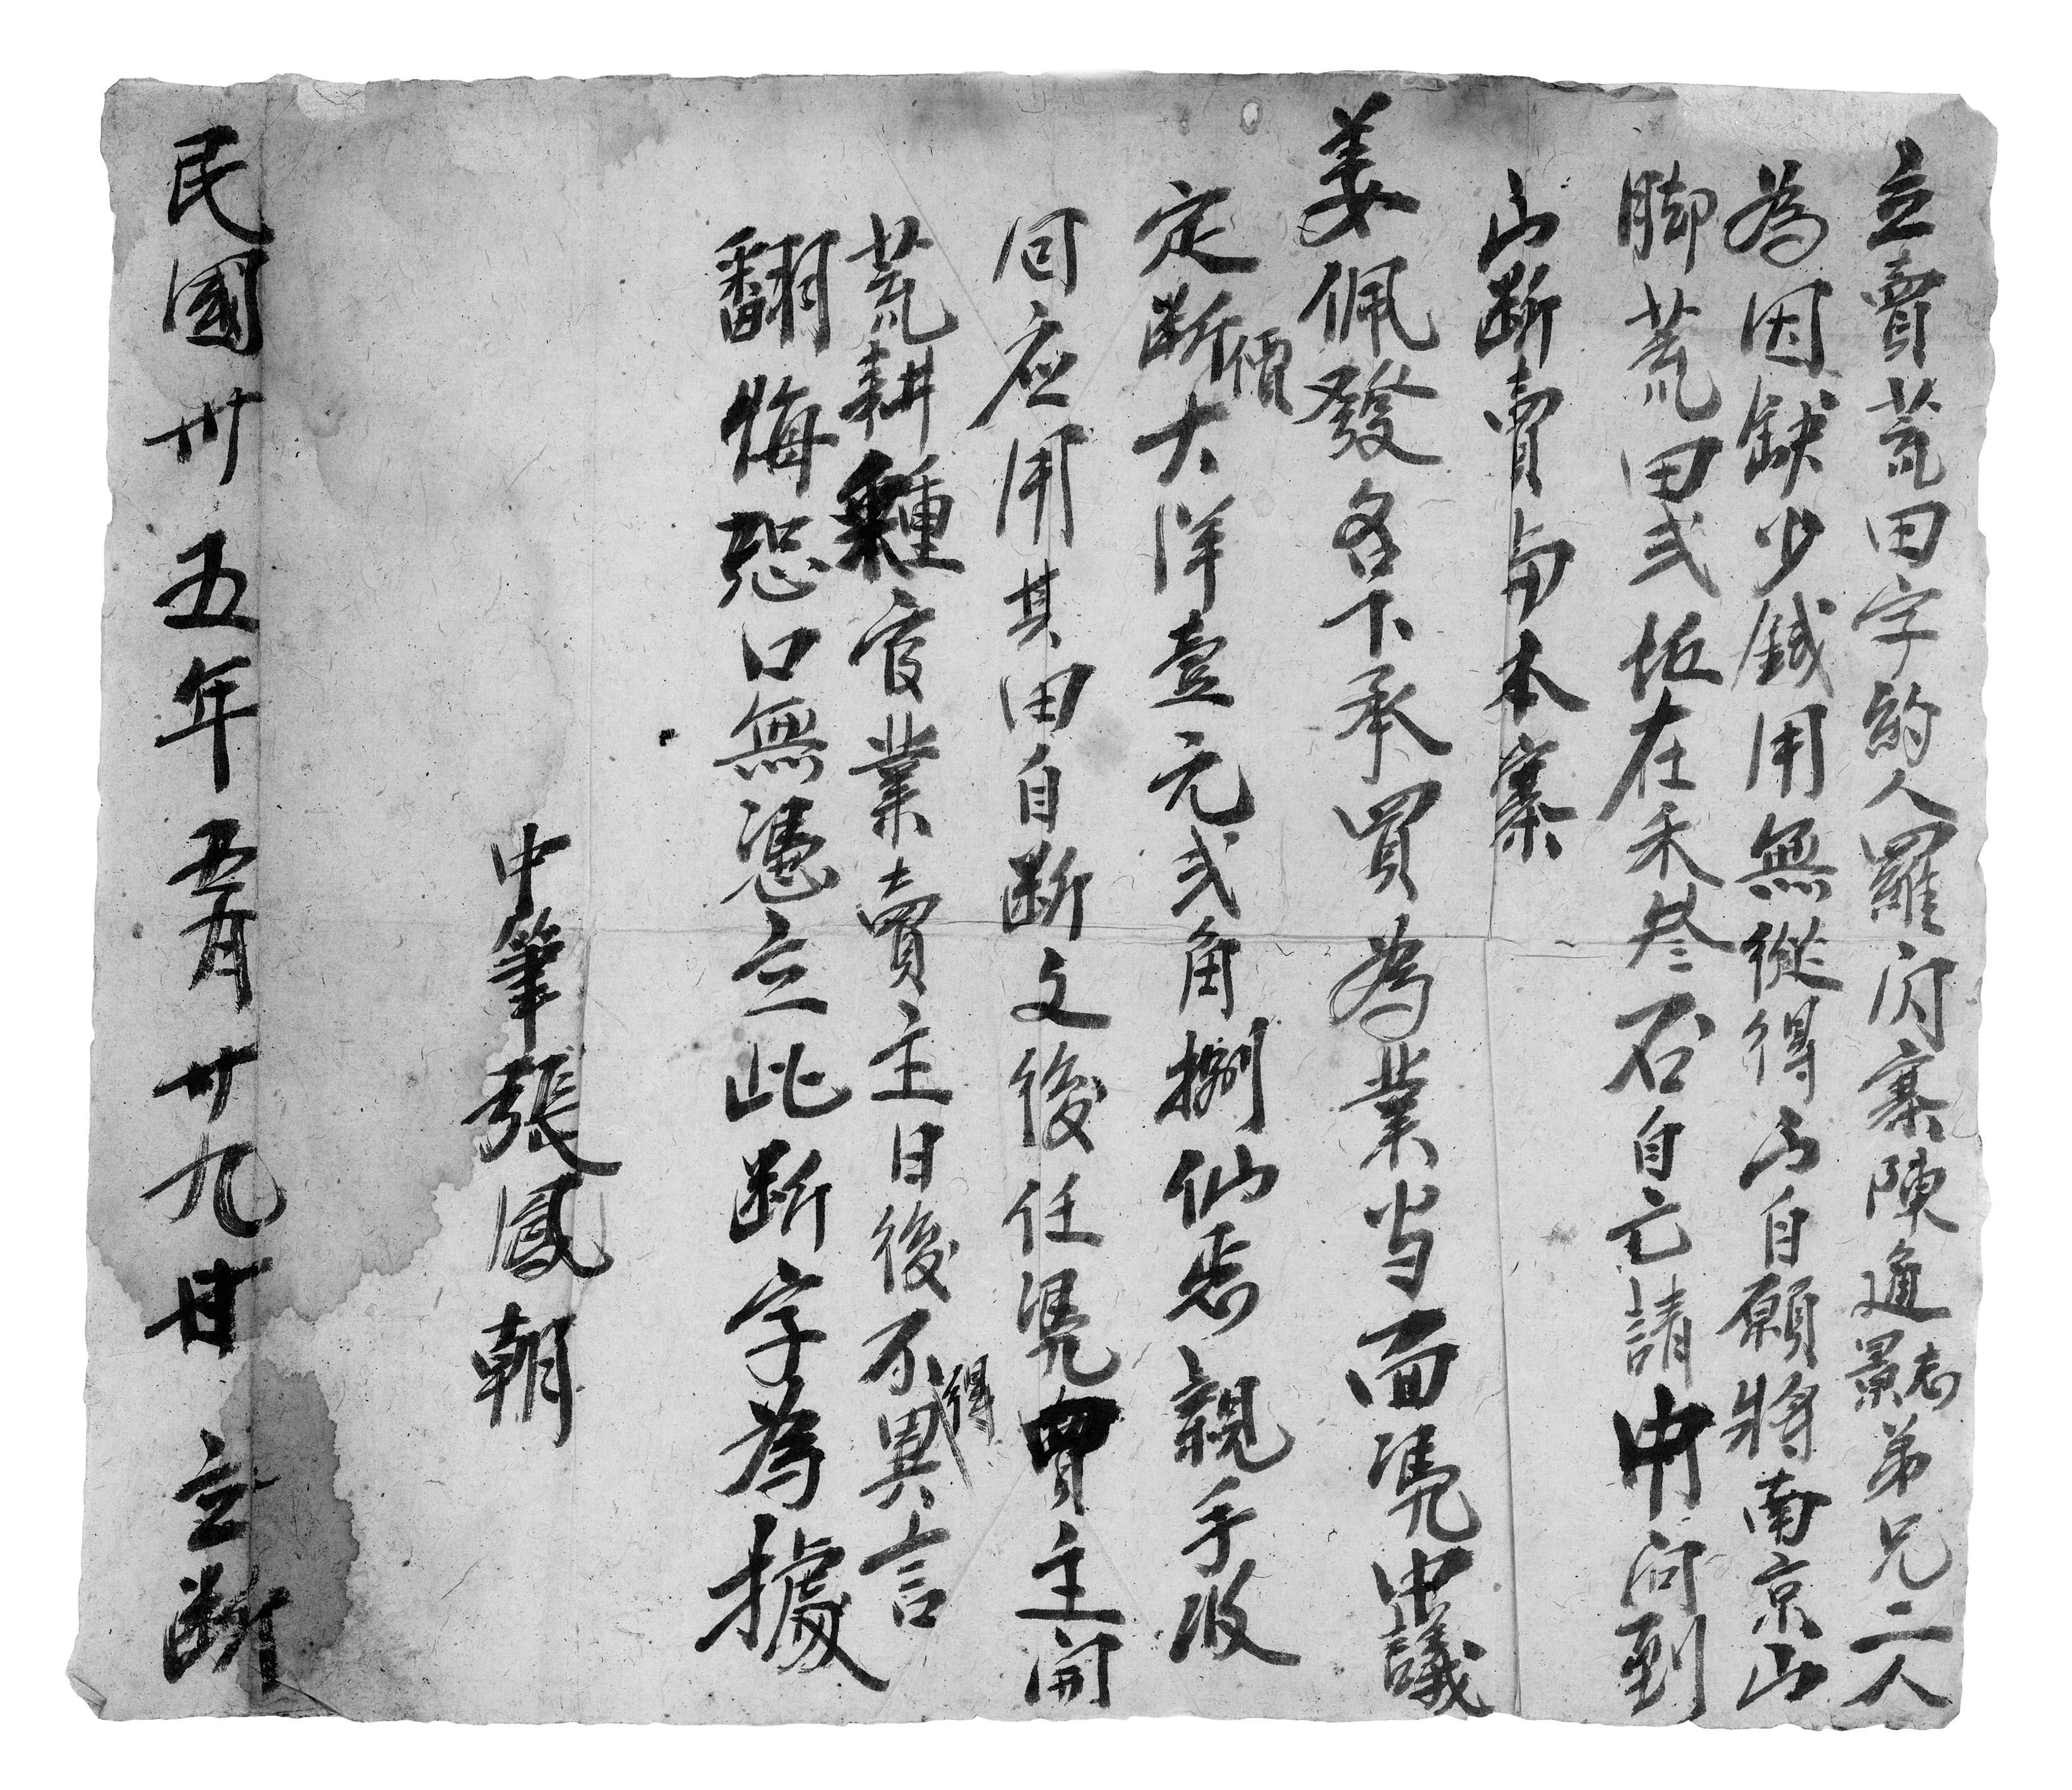 立賣荒田字約人羅閃寨陳通景志弟兄二人
為因缺少錢用無從得出自願將南京山
脚荒田弍坵在禾叁石自己請中问到
出断賣与本寨
姜佩發名下承買為業当面凴中議
定断價大洋壹元弍角捌仙悉親手收
回应用其田自断之後任凴買主開
荒耕種管業賣主日後不得異言
翻悔恐口無憑立此断字為據
中筆張鳳朝
民國卅五年五月廿九日立断